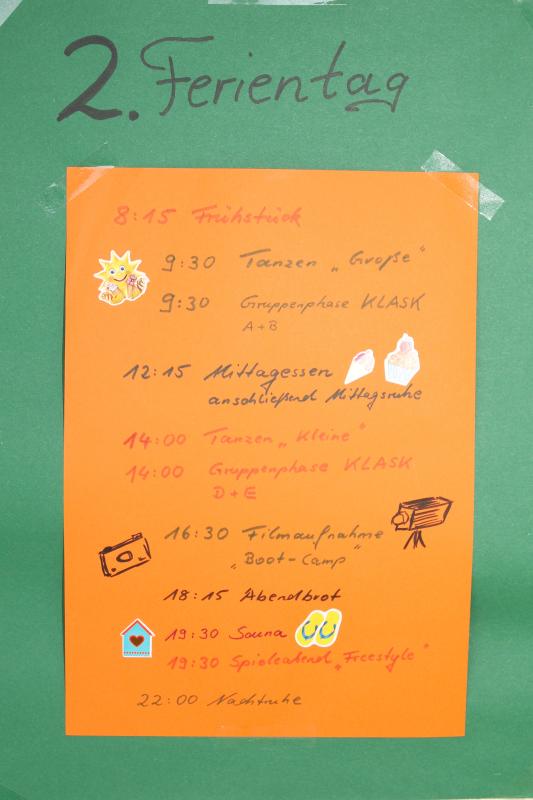 2. Ferientag
8:15 Frühstück
9:30 Tanzen „Große"
9:30 Gruppenphase KLASK
A+B
12:15 Mittagessen
anschließend Mittagsruhe
14:00 Tanzen „Kleine"
14:00 Gruppenphase KLASK
D+E
16:30 Filmaufnahme
„Boot-Camp"
18:15 Abendbrot
19:30 Sauna
19:30 Spieleabend „Freestyle"
22:00 Nachtruhe